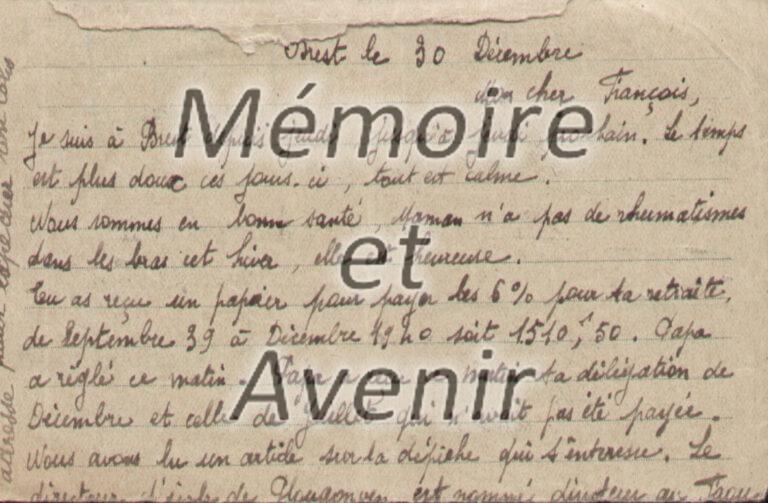 Brest le 30 Décembre
Mon cher François,
Je suis à Brest depuis jeudi, jusqu'à jeudi prochain. Le temps
est plus doux ces jours-ci, tout est calme.
Nous sommes en bonne santé, Maman n'a pas de rhumatismes
dans les bras cet hiver, elle est heureuse.
Tu as reçu un papier pour payer les 6% pour ta retraite,
de Septembre 39 à Décembre 1940 soit 1510f,50. Papa
a réglé ce matin. Papa a ce matin ta délégation de
Décembre et celle de Juillet qui n'avait pas été payée.
Nous avons lu un article sur la dépêche qui t'intéresse. Le
directeur d'école de Plougonven est nommé directeur au
Mémoire
et
Avenir
adresse pour expédier